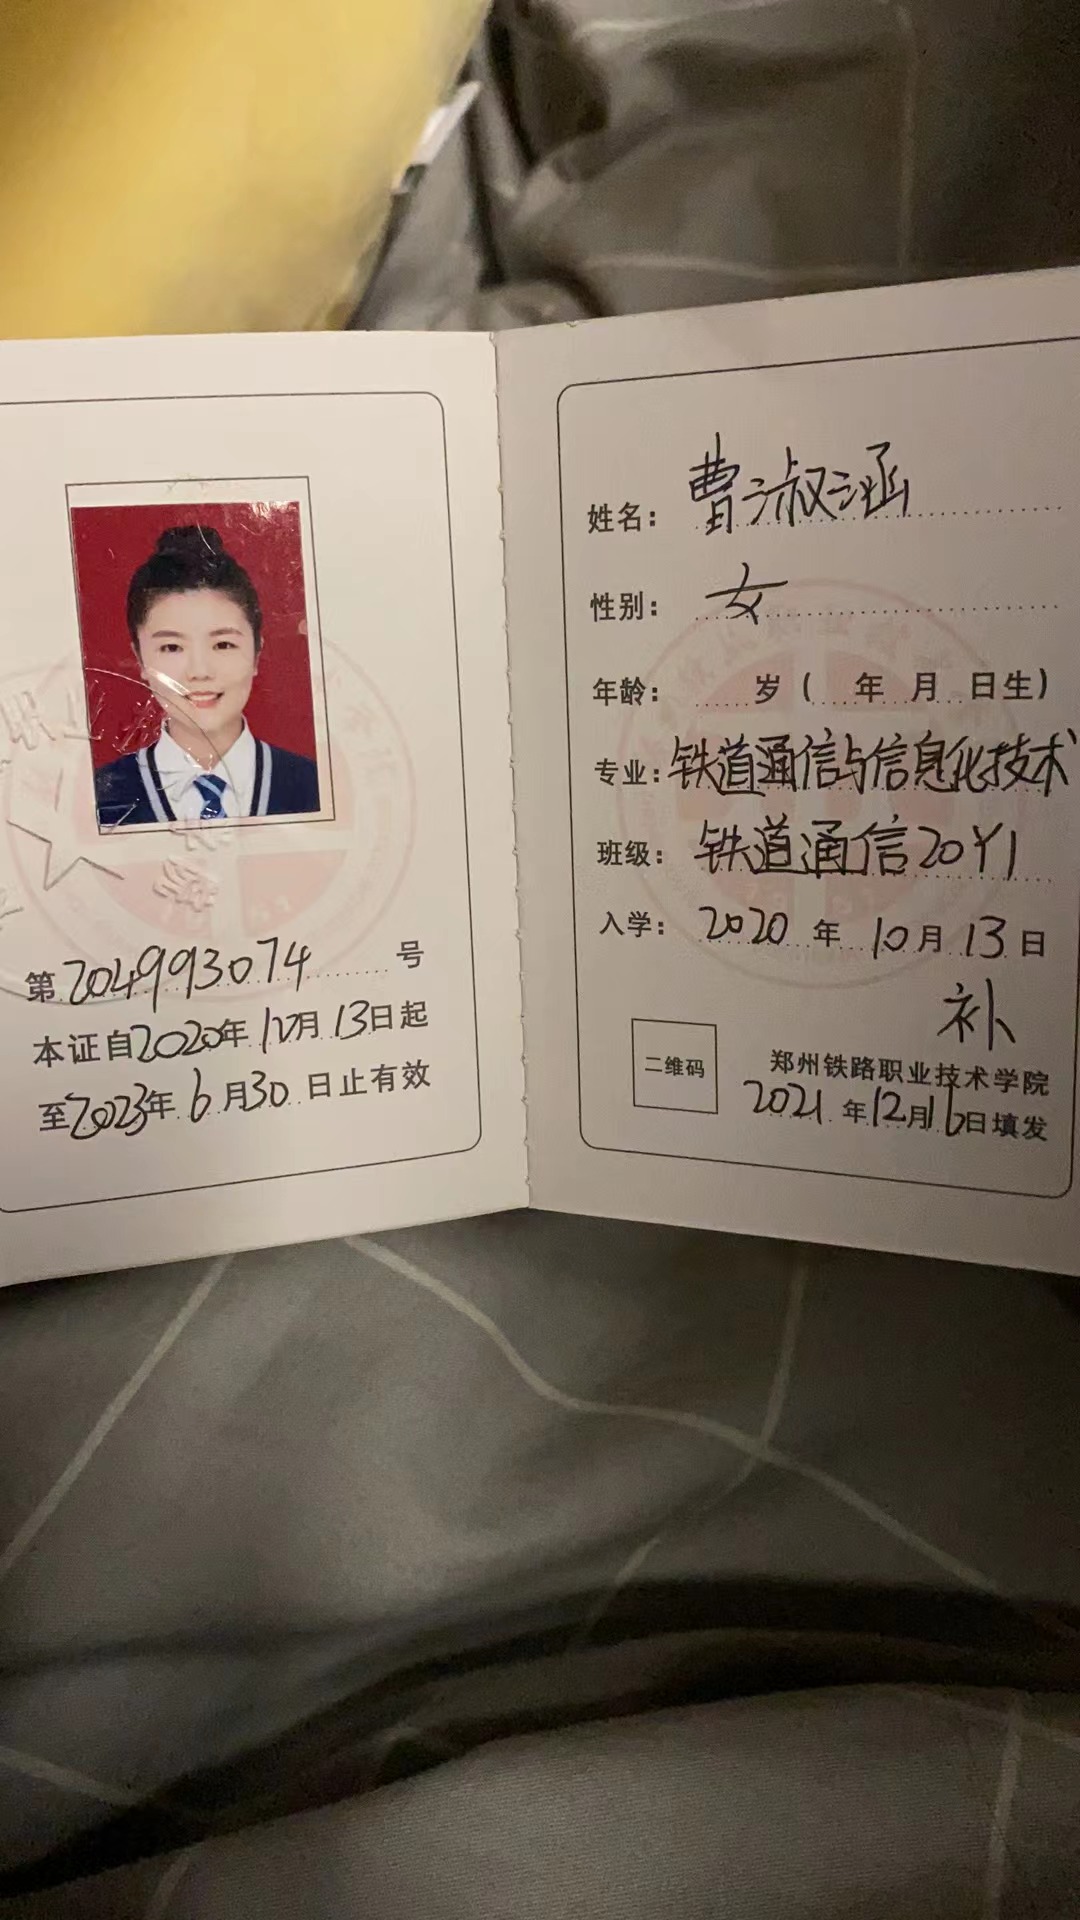 第204993074号
本证自2020年10月13日起
至2023年6月30日止有效
姓名：曹淑涵
性别：女
年龄：岁（年月日生）
专业：铁道通信与信息化技术
班级：铁道通信20Y1
入学：2020年10月13日
补
二维码
郑州铁路职业技术学院
2021年12月16日填发